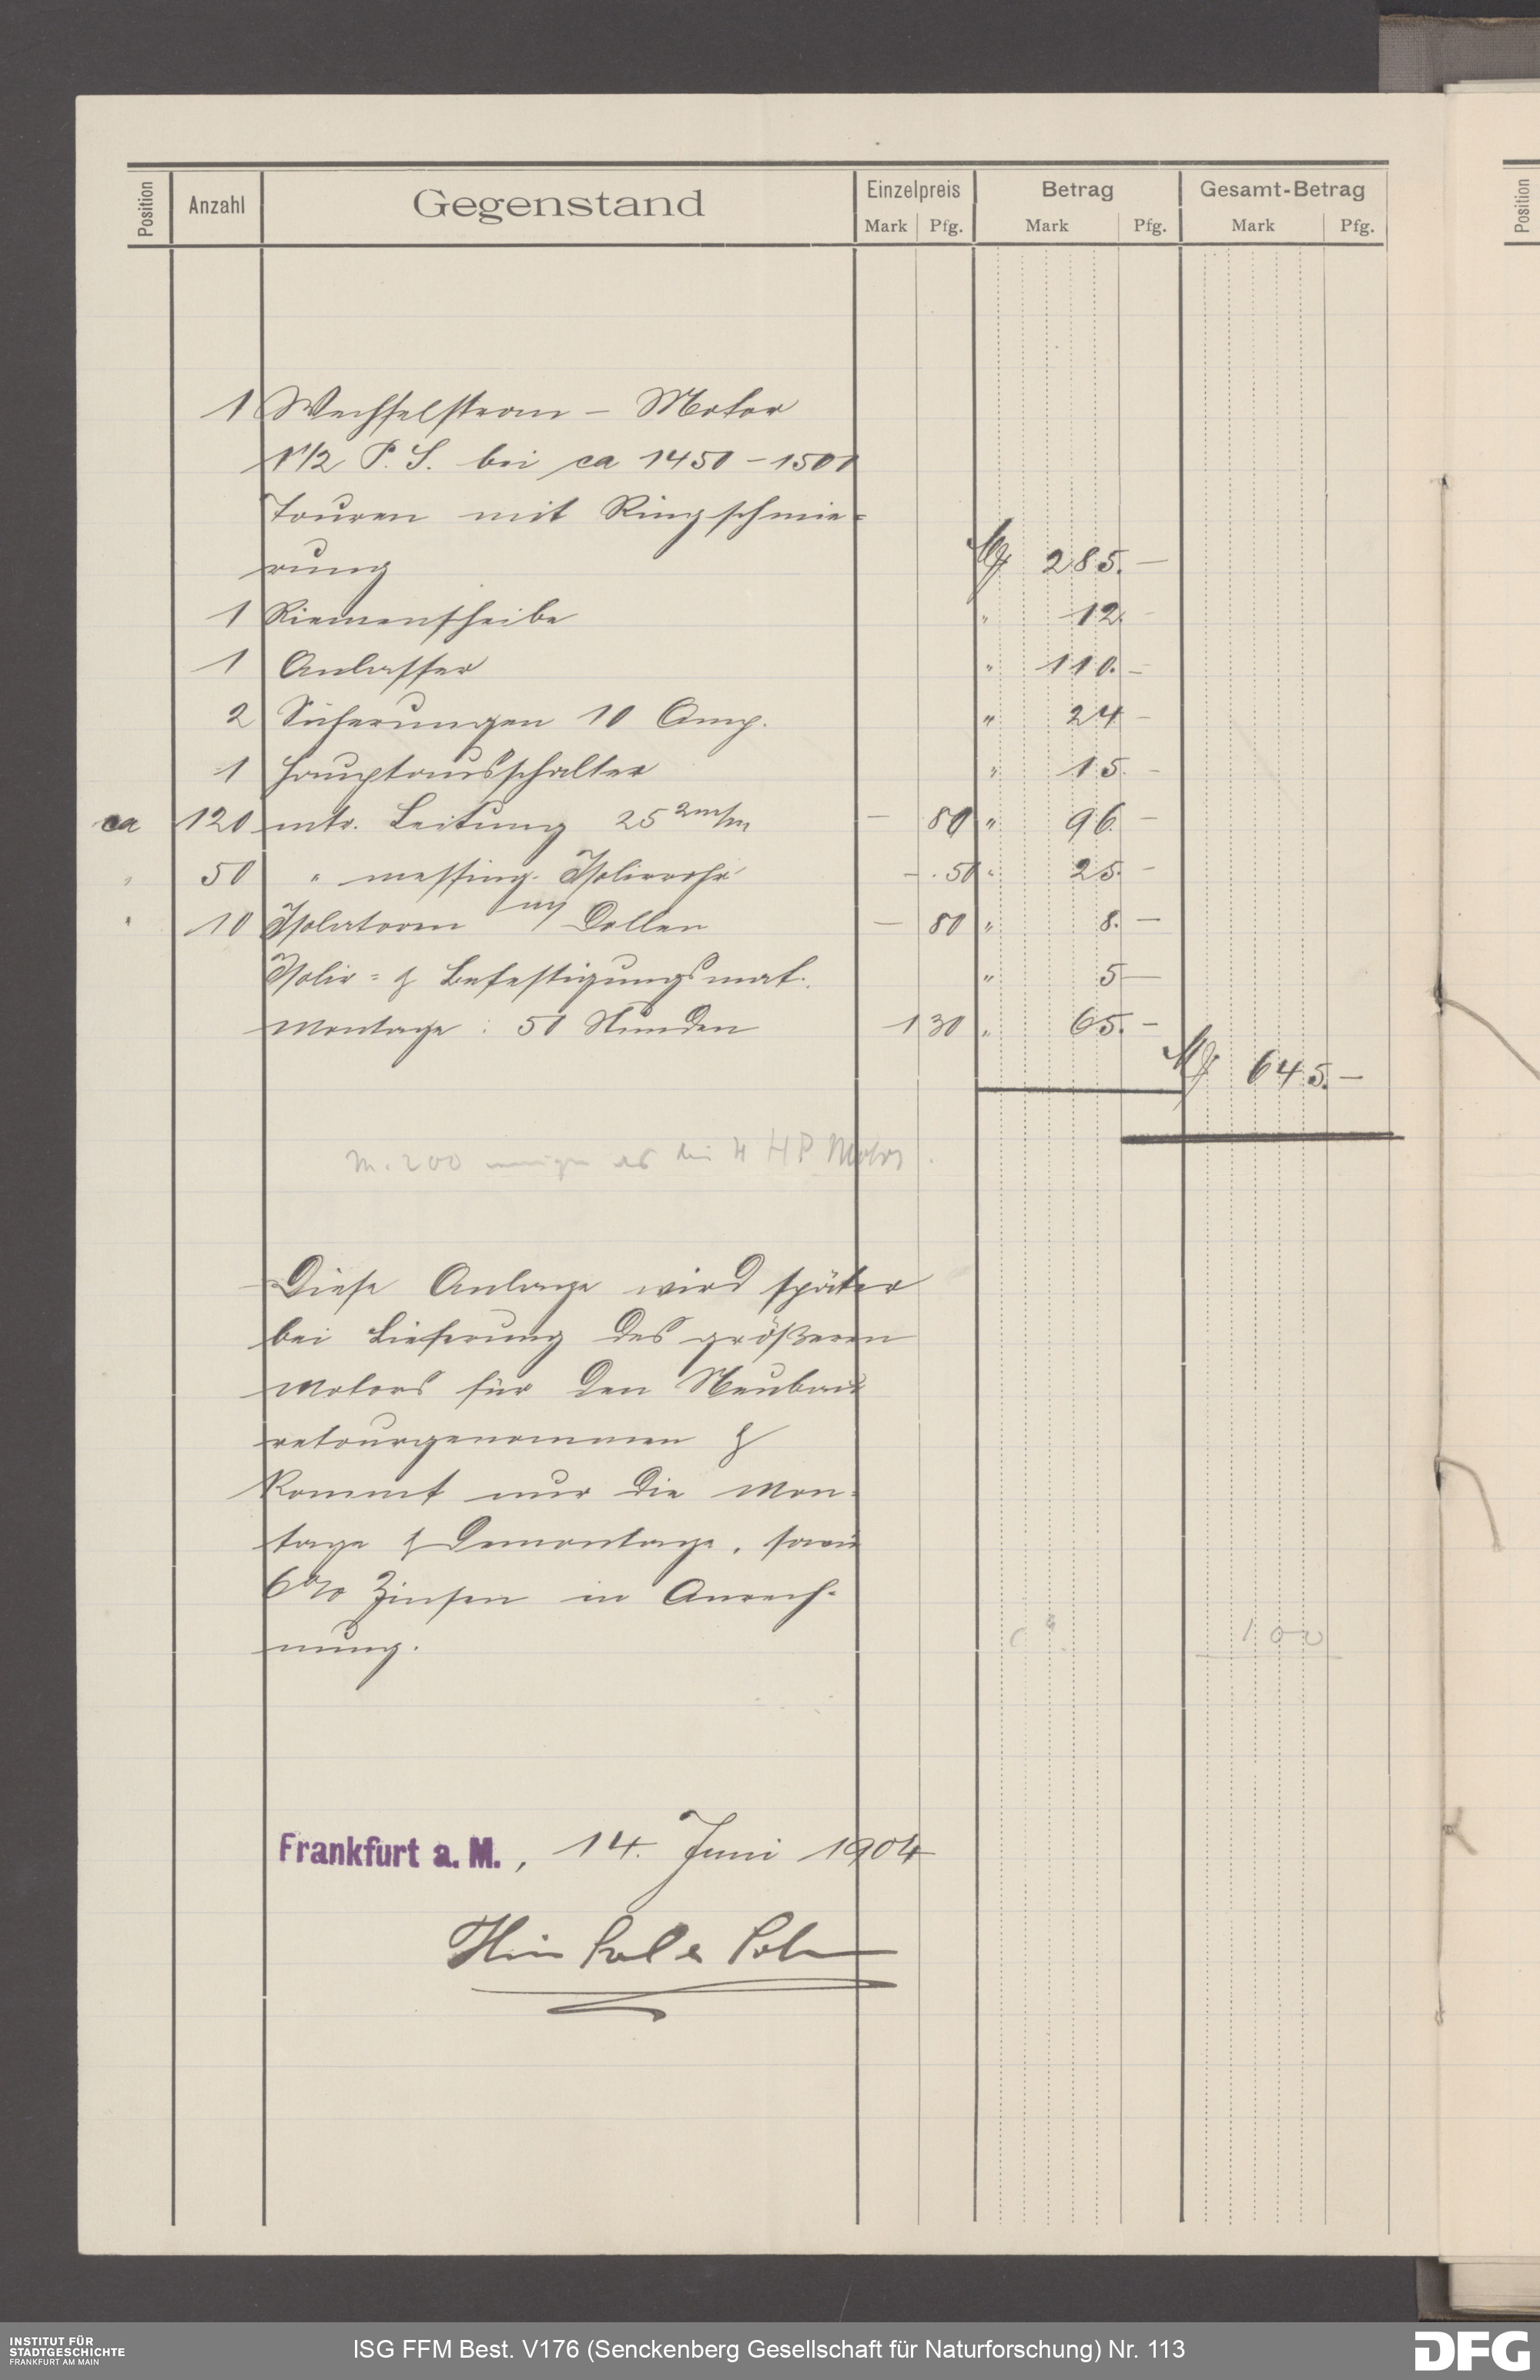 Position Anzahl Gegenstand Einzelpreis Betrag Gesamt-Betrag Position
Mark Pfg. Mark Pfg. Mark Pfg.
1 Wechselstrom - Motor
1 1/2 P. S. bei ca 1450 - 1500
Touren mit Ringschmie=
rung M 285. —
1 Riemenscheibe " 12. —
1 Anlasser " 110. —
2 Sicherungen 10 Amp. " 24 —
1 Hauptausschalter " 15. —
ca 120 mtr. Leitung 25 2m/m — 80 " 96. —
" 50 " messing. Isolierrohr — . 50 " 25. —
" 10 Isolatoren m/ Dollen — 80 " 8. —
Isolir= & Befestigungsmat. " 5 —
Montage : 50 Stunden 1 30 " 65. —
M 645. —
M. 200 weniger als die 4 HP Motor.
Diese Anlage wird später
bei Lieferung des größeren
Motors für den Neubau
retourgenommen &
kommt nur die Mon-
tage & Demontage, sowie
6% Zinsen in Anrech-
nung.
100
Frankfurt a. M., 14. Juni 1904
INSTITUT FÜR
STADTGESCHICHTE
FRANKFURT AM MAIN
ISG FFM Best. V176 (Senckenberg Gesellschaft für Naturforschung) Nr. 113
DFG